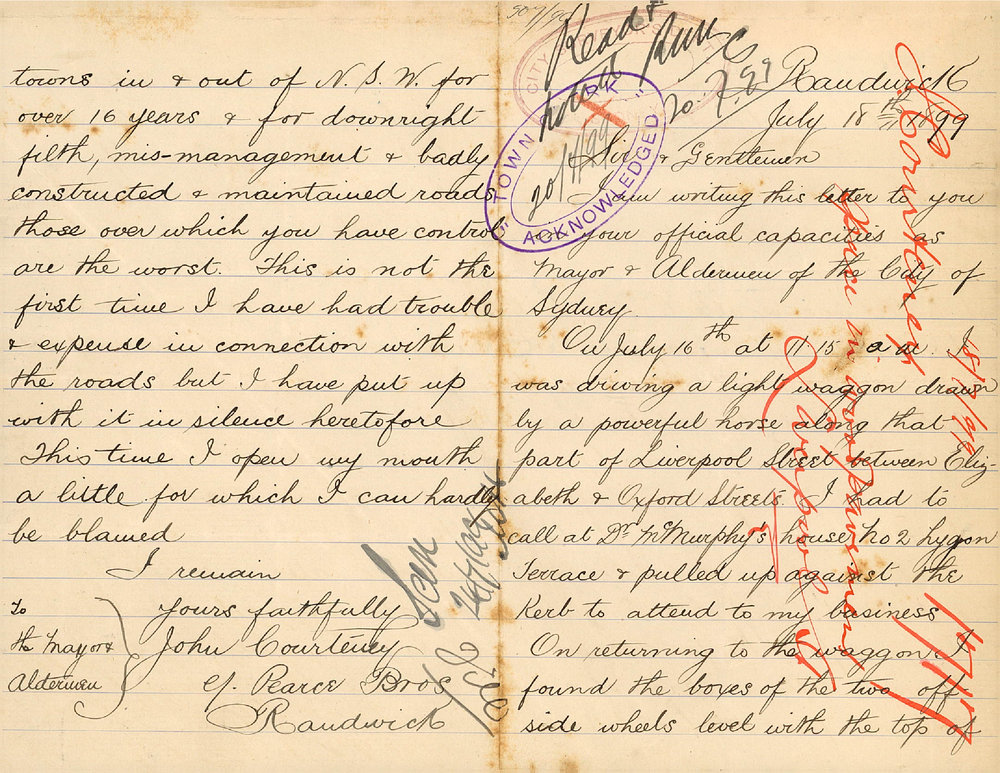 towns in & out of N. S. W. for
over 16 years & for downright
filth, mis-management & badly
constructed & maintained roads
those over which you have control
are the worst. This is not the
first time I have had trouble
& expense in connection with
the roads but I have put up
with it in silence heretofore
This time I open my mouth
a little for which I can hardly
be blamed
I remain
Yours faithfully
John Courteney
c/. Pearce Bros
Randwick
To
the Mayor &
Aldermen
Seen
Read &
20.7.99
CITY
TOWN CLERK
20/7/99
ACKNOWLEDGED
Randwick
July 18th 1899
Sir & Gentlemen
I am writing this letter to you
in your official capacities as
Mayor & Aldermen of the City of
Sydney
On July 16th at 11 15 a m. I
was driving a light waggon drawn
by a powerful horse along that
part of Liverpool Street between Eliz-
abeth & Oxford Streets. I had to
call at Dr. McMurphy's house No 2 Lygon
Terrace & pulled up against the
Kerb to attend to my business
On returning to the waggon I
found the boxes of the two off
side wheels level with the top of
J. Courteney
18/7/99
Liverpool St